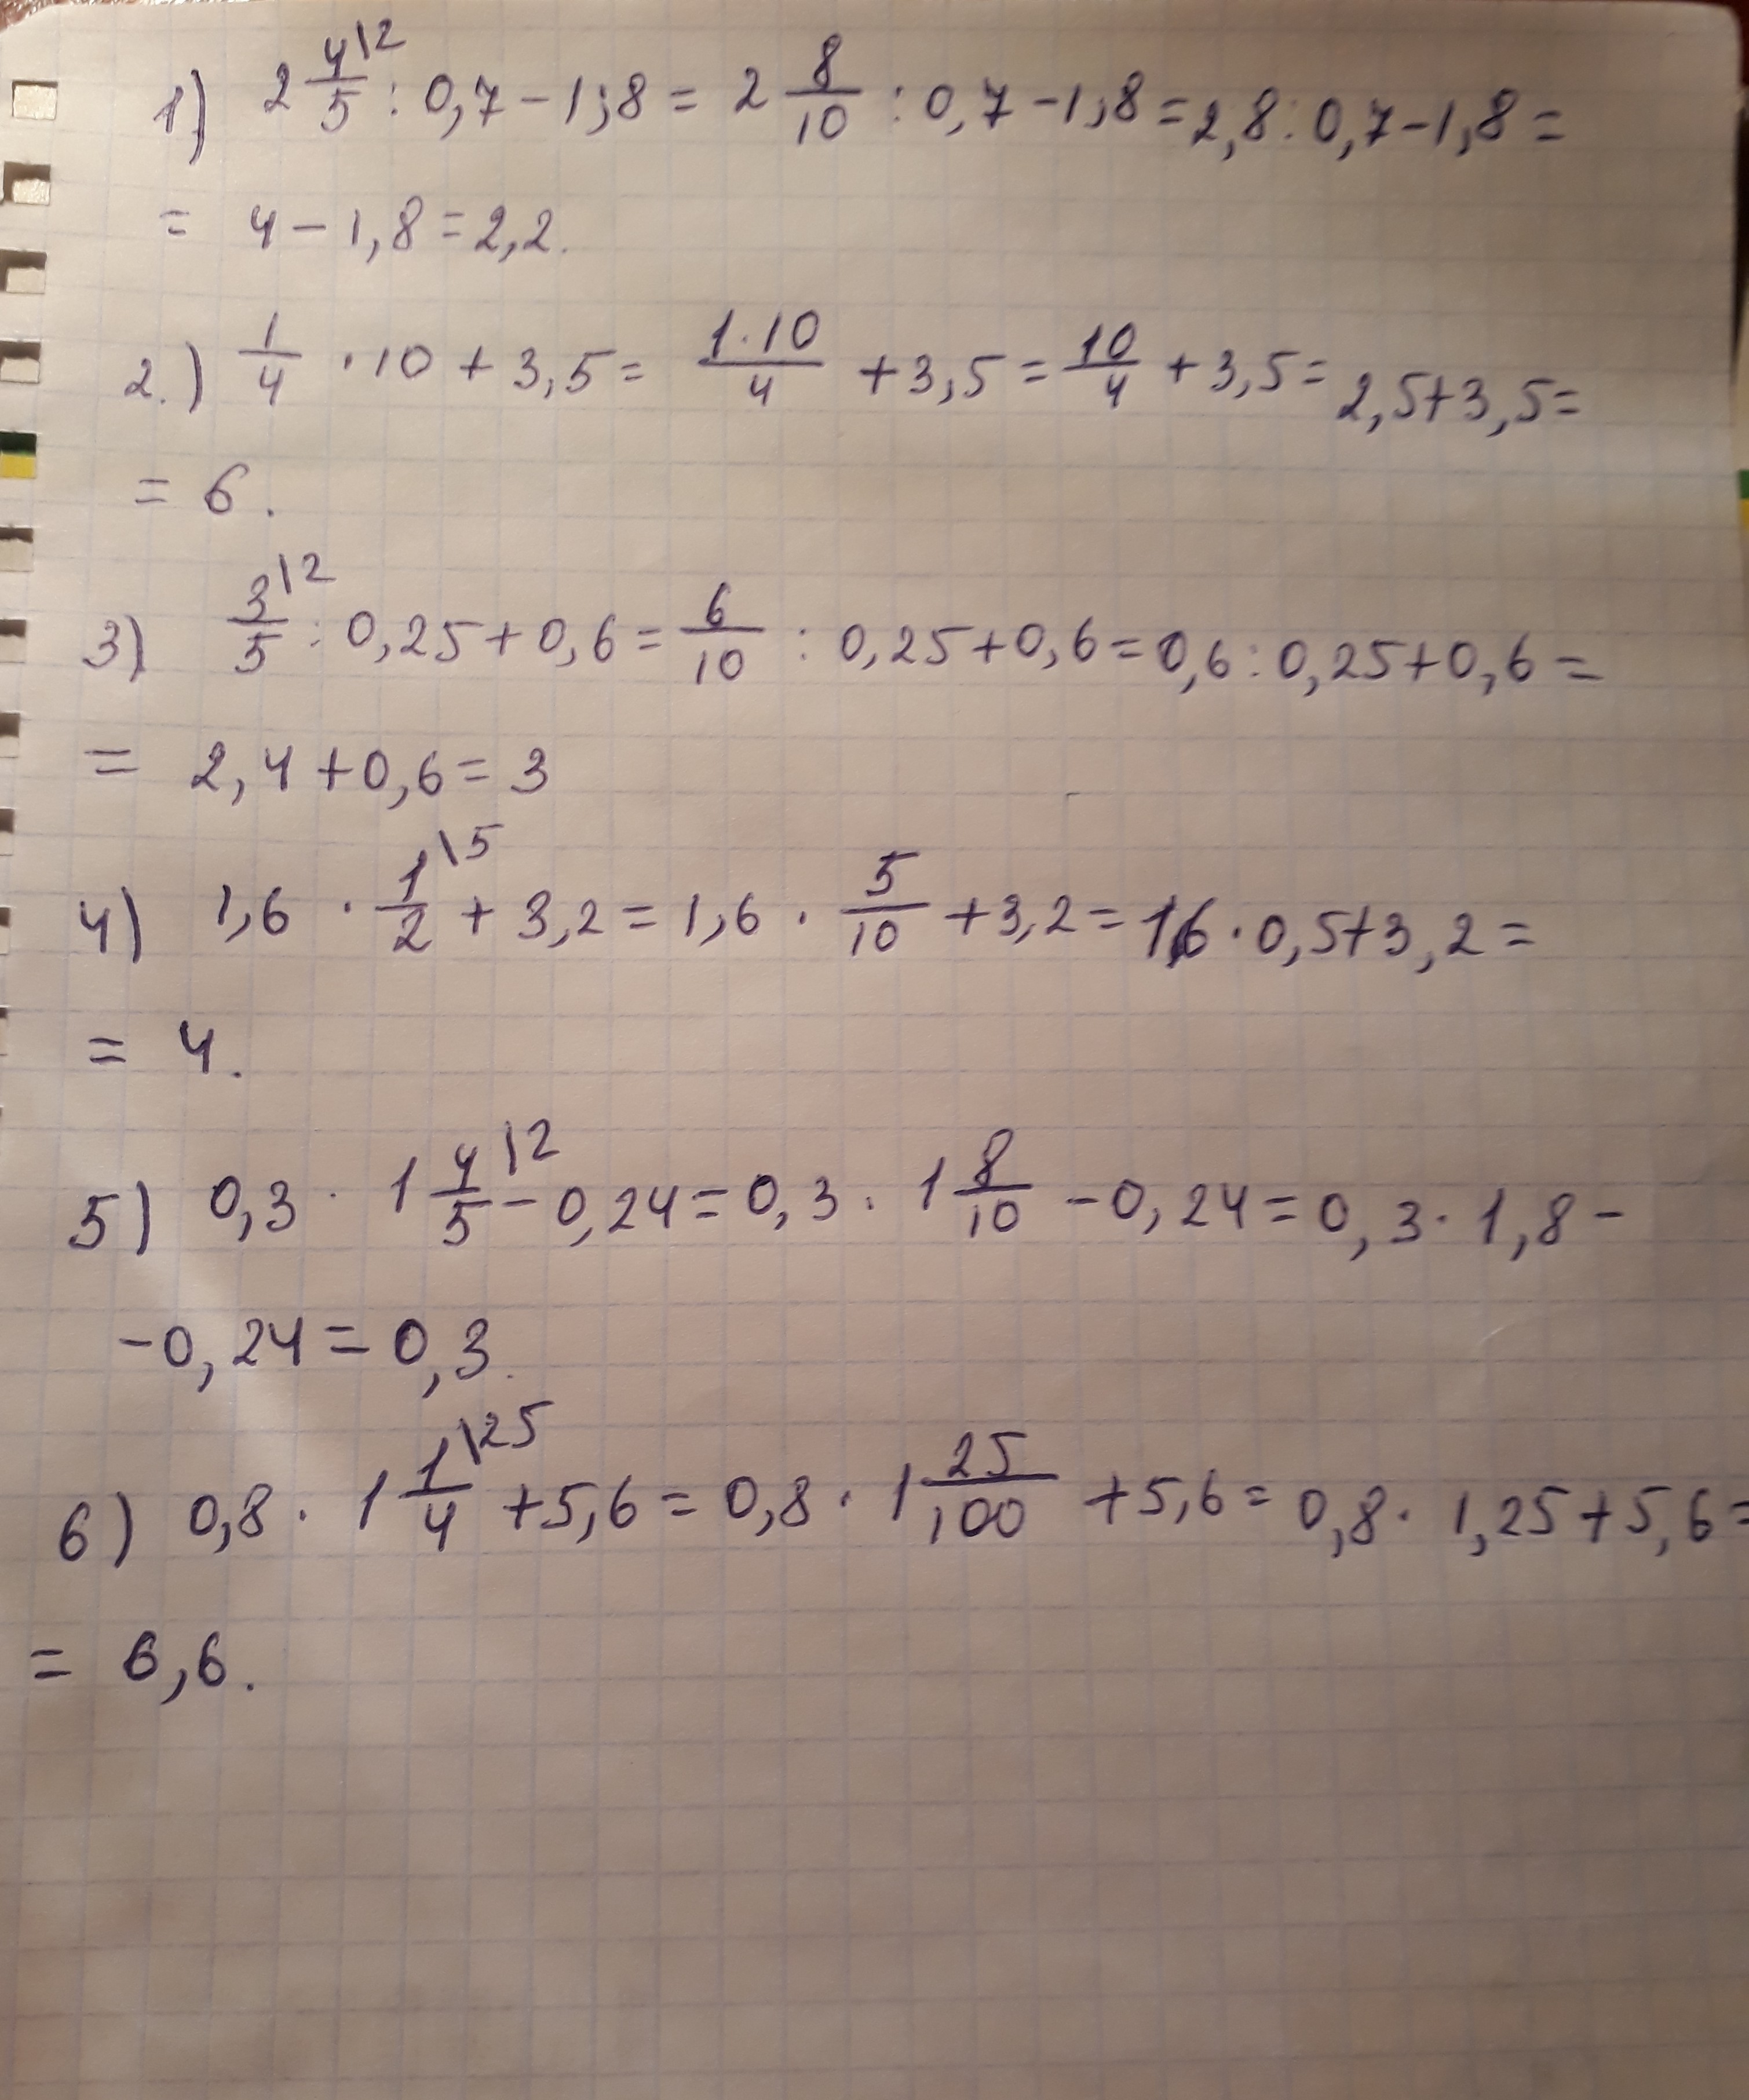 1) 2 4/5 \2 : 0,7 - 1,8 = 2 8/10 : 0,7 - 1,8 = 2,8 : 0,7 - 1,8 =
= 4 - 1,8 = 2,2.
2.) 1/4 · 10 + 3,5 = 1·10/4 + 3,5 = 10/4 + 3,5 = 2,5 + 3,5 =
= 6.
3) 3/5 \2 : 0,25 + 0,6 = 6/10 : 0,25 + 0,6 = 0,6 : 0,25 + 0,6 =
= 2,4 + 0,6 = 3
4) 1,6 · 1/2 \5 + 3,2 = 1,6 · 5/10 + 3,2 = 1,6 · 0,5 + 3,2 =
= 4.
5) 0,3 · 1 4/5 \2 - 0,24 = 0,3 · 1 8/10 - 0,24 = 0,3 · 1,8 -
- 0,24 = 0,3.
6) 0,8 · 1 1/4 \25 + 5,6 = 0,8 · 1 25/100 + 5,6 = 0,8 · 1,25 + 5,6 =
= 6,6.